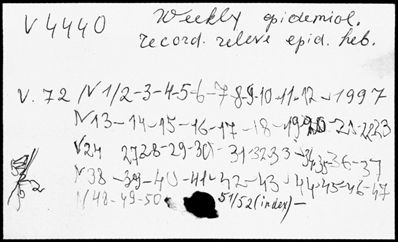 V 4440 Weekly epidemiol.
record. relevé epid. heb.
V. 72 N 1/2-3-4-5-6-7-8-9-10-11-12 - 1997
N 13-14-15-16-17-18-19-20-21-22-23
N 24 27 28-29-30 31-32-33 - 34-35-36-37
N 38-39-40-41-42-43-44-45-46-47
N 48-49-50 51/52 (index) -